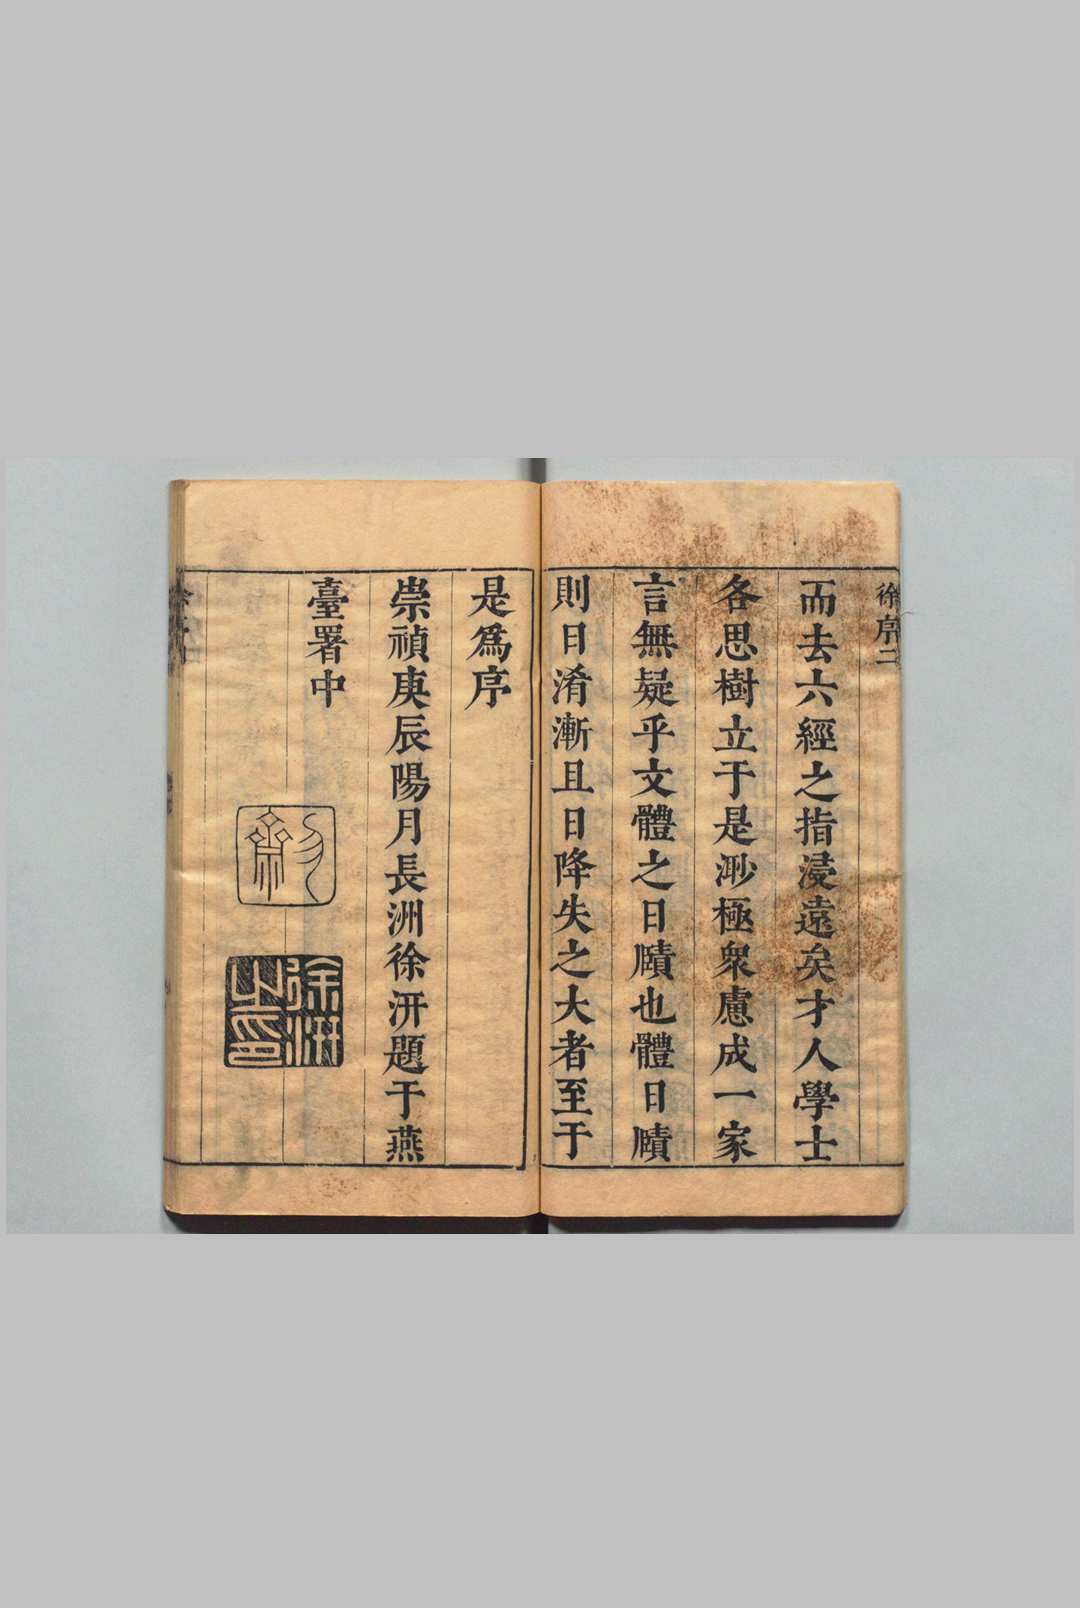 徐序二
而去六經之指浸遠矣才人學士
各思樹立于是渺極衆慮成一家
言無疑乎文體之日賾也體日賾
則日淆漸且日降失之大者至于
是爲序
崇禎庚辰陽月長洲徐汧題于燕
臺署中
勿齋
徐汧之印